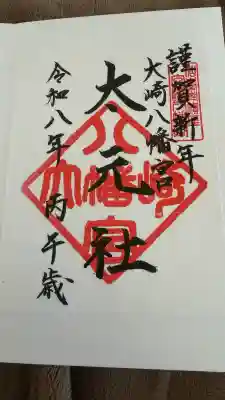 謹賀新年
大崎八幡宮
大元社
令和八年 丙午歳
大崎
八幡宮